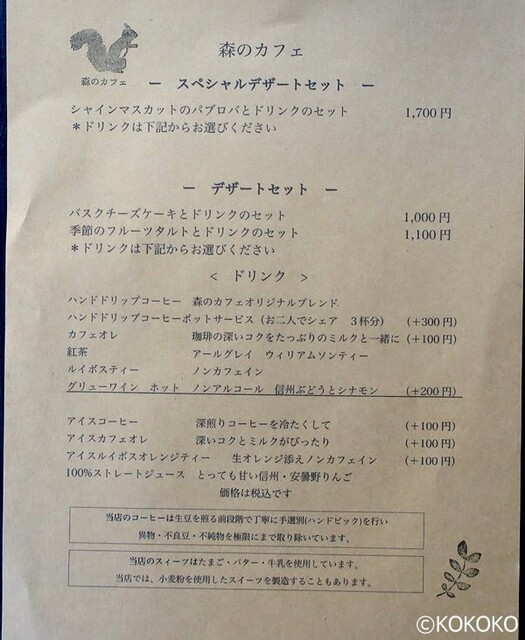 森のカフェ
森のカフェ
ー スペシャルデザートセット ー
シャインマスカットのパブロバとドリンクのセット 1,700円
＊ドリンクは下記からお選びください
ー デザートセット ー
バスクチーズケーキとドリンクのセット 1,000円
季節のフルーツタルトとドリンクのセット 1,100円
＊ドリンクは下記からお選びください
< ドリンク >
ハンドドリップコーヒー 森のカフェオリジナルブレンド
ハンドドリップコーヒーポットサービス（お二人でシェア ３杯分） (＋300円)
カフェオレ 珈琲の深いコクをたっぷりのミルクと一緒に (＋100円)
紅茶 アールグレイ ウィリアムソンティー
ルイボスティー ノンカフェイン
グリューワイン ホット ノンアルコール 信州ぶどうとシナモン (＋200円)
アイスコーヒー 深煎りコーヒーを冷たくして (＋100円)
アイスカフェオレ 深いコクとミルクがぴったり (＋100円)
アイスルイボスオレンジティー 生オレンジ添えノンカフェイン (＋100円)
100%ストレートジュース とっても甘い信州・安曇野りんご
価格は税込です
当店のコーヒーは生豆を煎る前段階で丁寧に手選別(ハンドピック)を行い
異物・不良豆・不純物を極限にまで取り除いています。
当店のスィーツはたまご・バター・牛乳を使用しています。
当店では、小麦粉を使用したスイーツを製造することもあります。
©KOKOKO